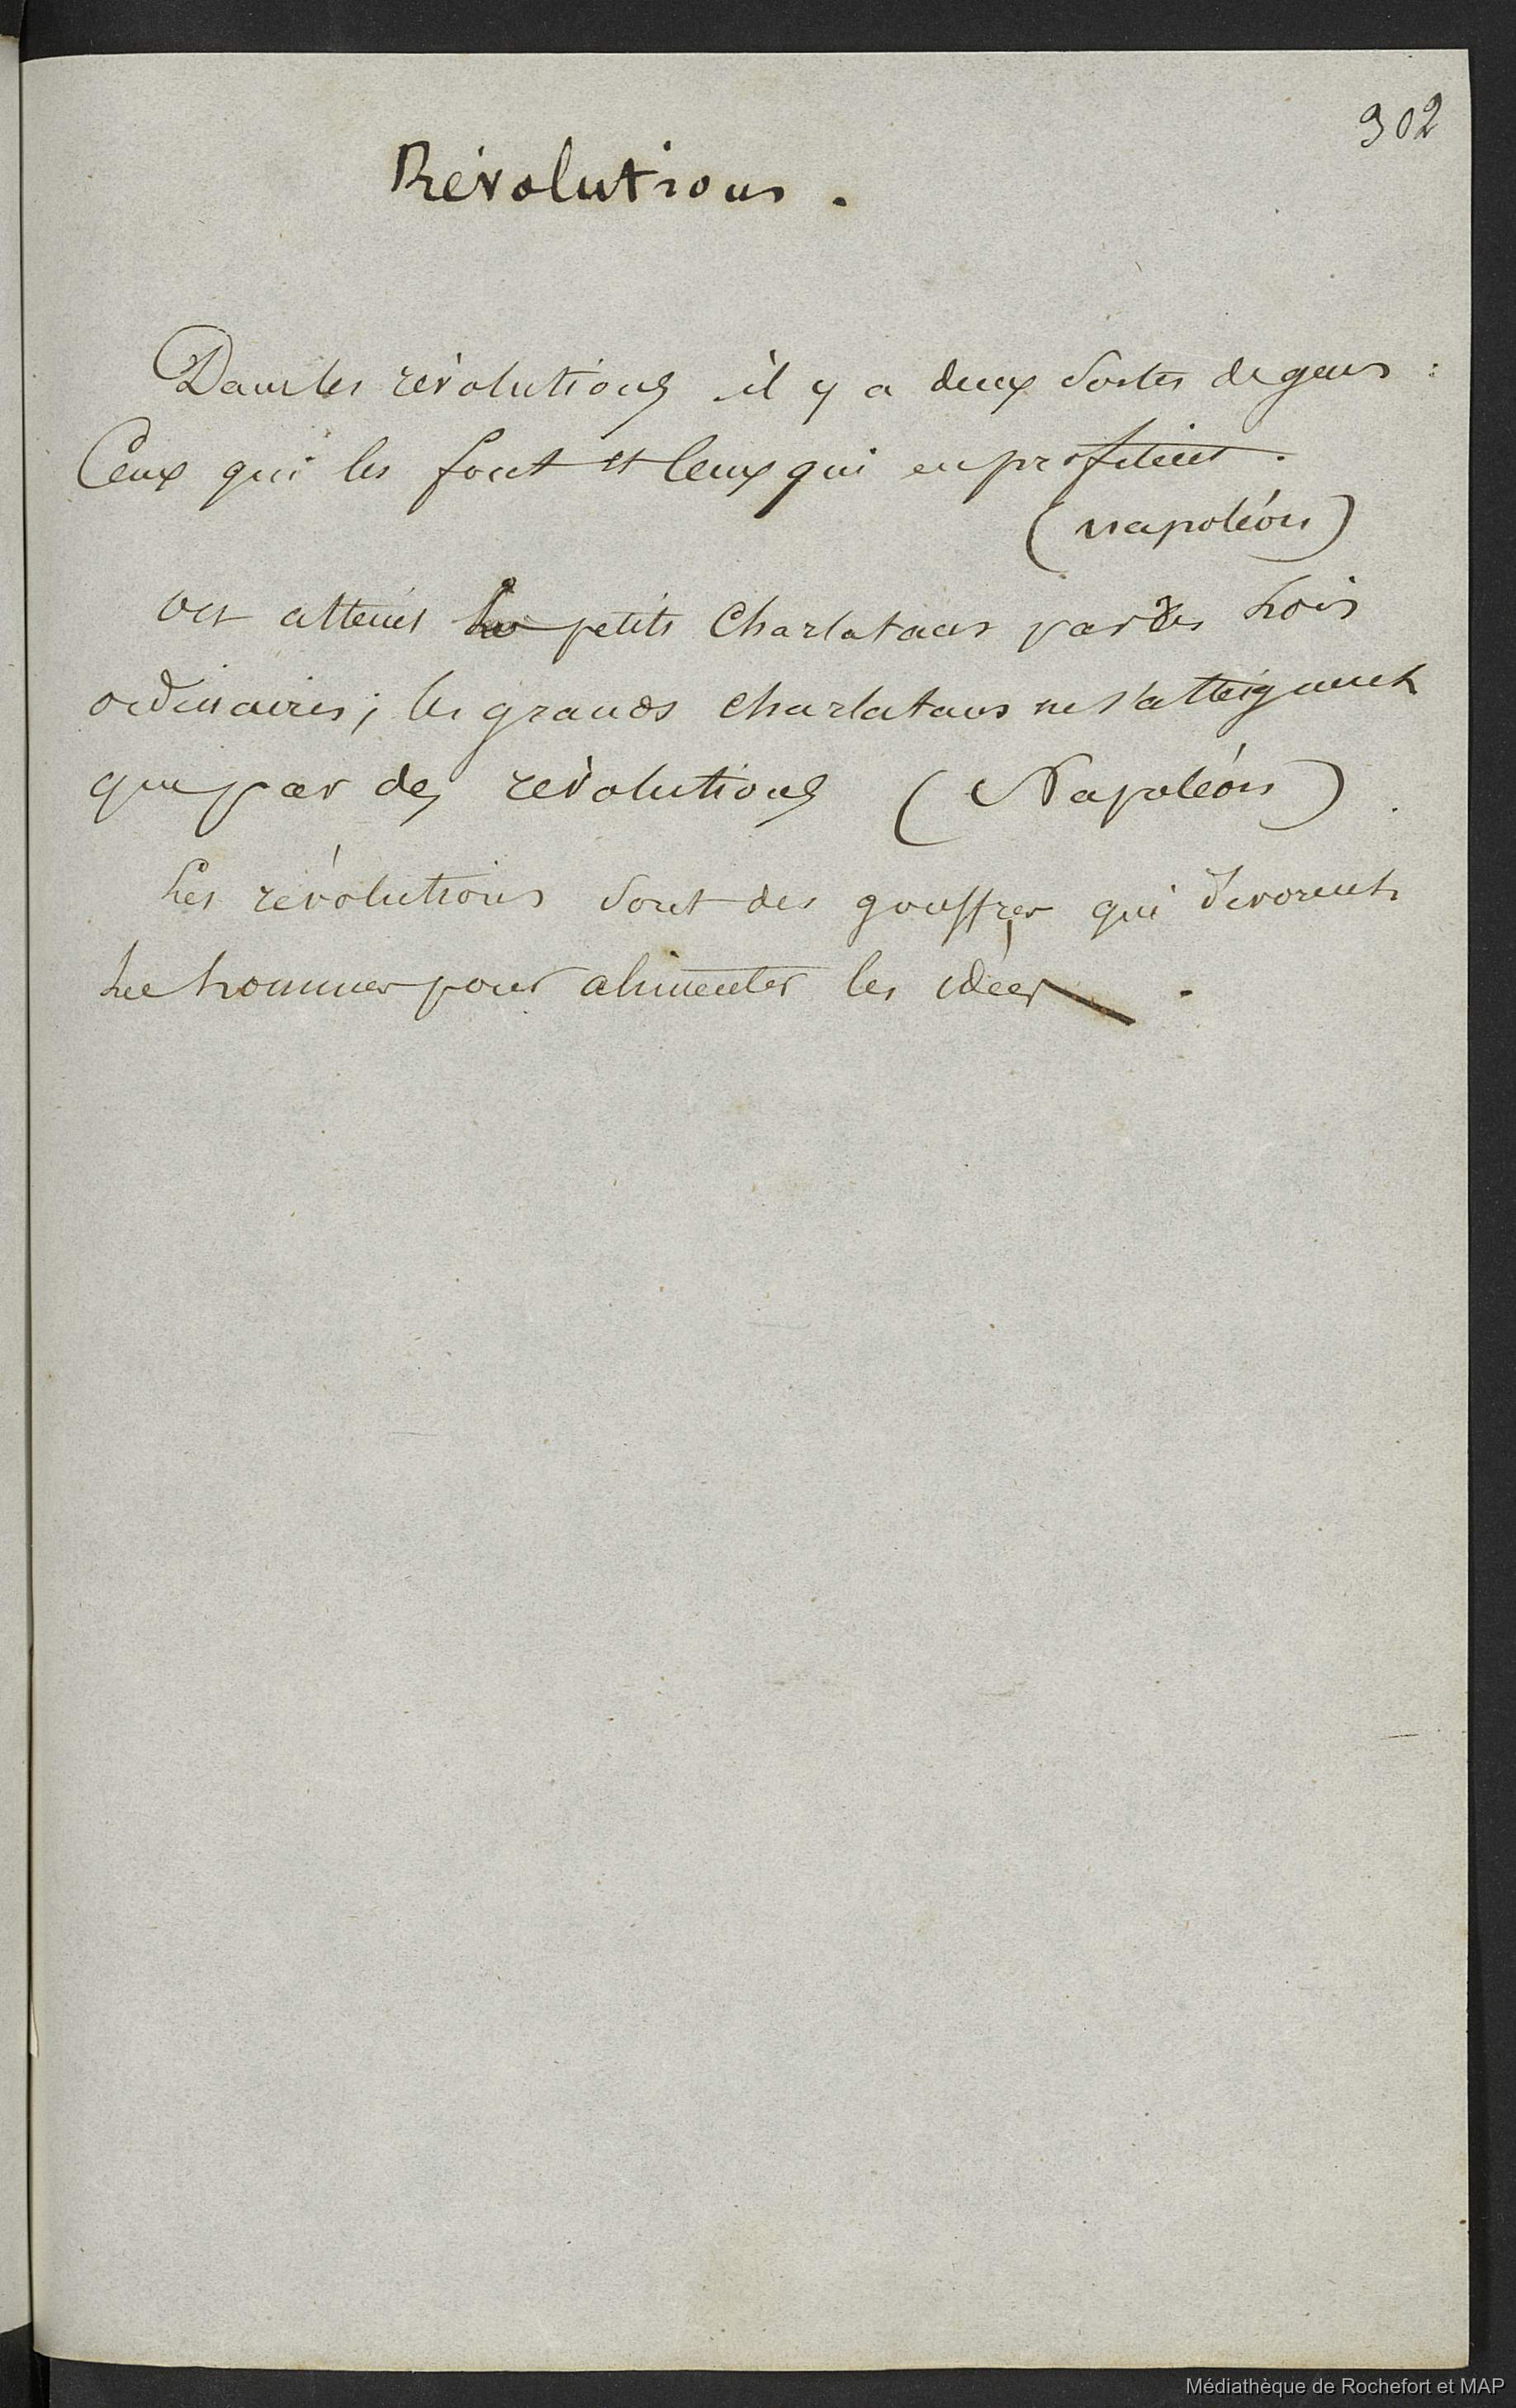 302
Révolutions.
Dans les révolutions il y a deux sortes de gens :
Ceux qui les font et Ceux qui en profitent.
(napoléon)
On atteint les petits Charlatans par des Lois
ordinaires ; les grands charlatans ne s'atteignent
que par des révolutions (Napoléon).
Les révolutions sont des gouffres qui dévorent
les hommes pour alimenter les idées.
Médiathèque de Rochefort et MAP